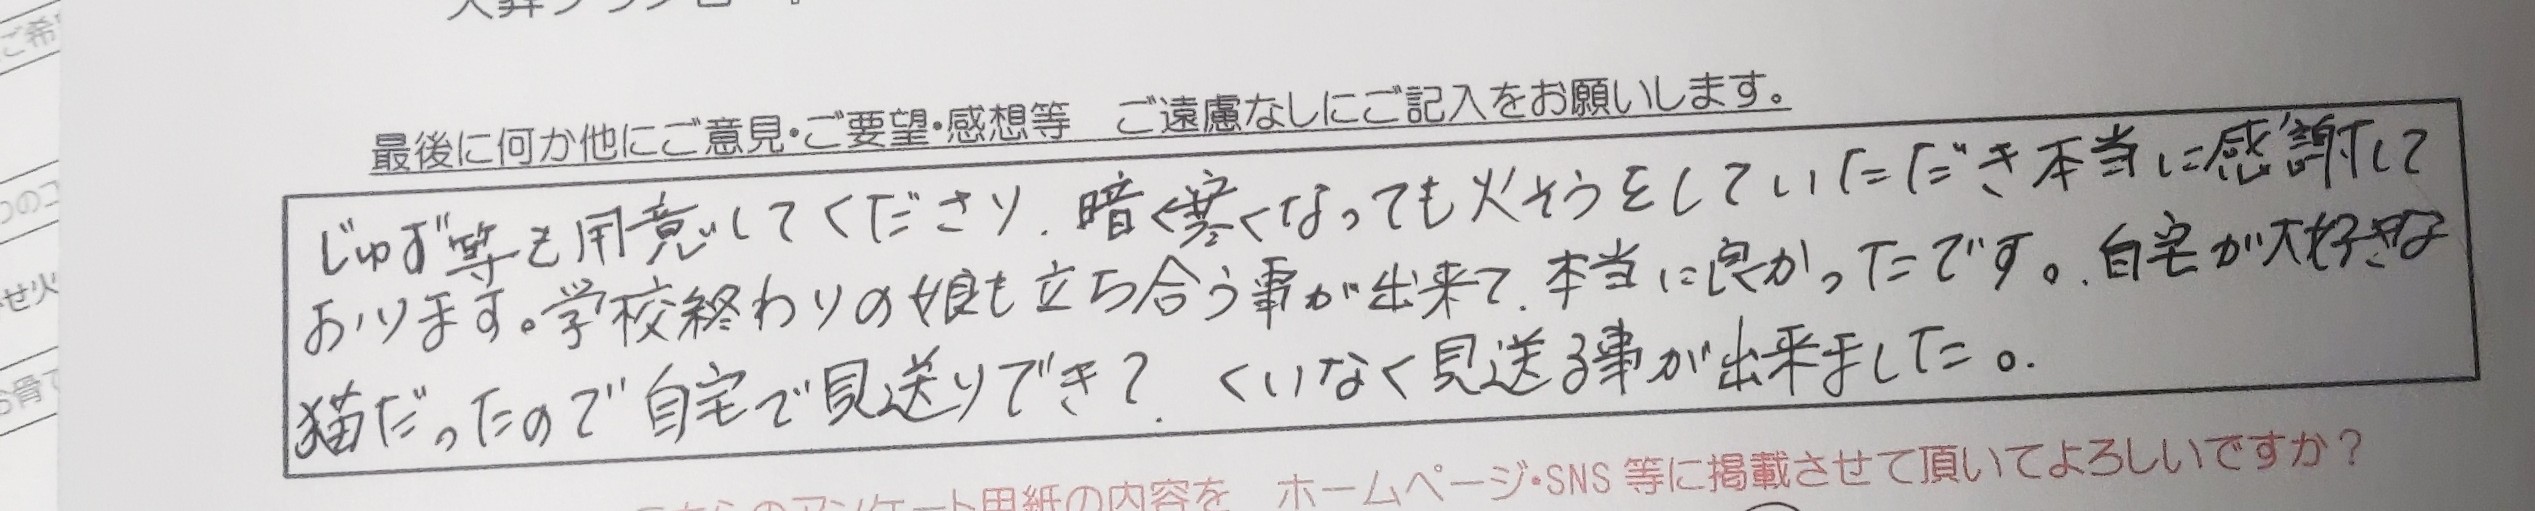 ご希
最後に何か他にご意見・ご要望・感想等　ご遠慮なしにご記入をお願いします。
じゅず等も用意してくださり、暗く寒くなっても火そうをしていただき本当に感謝して
おります。学校終わりの娘も立ち合う事が出来て、本当に良かったです。自宅が大好きな
猫だったので自宅で見送りでき、くいなく見送る事が出来ました。
せ火
お骨
こちらのアンケート用紙の内容を　ホームページ・SNS等に掲載させて頂いてよろしいですか？